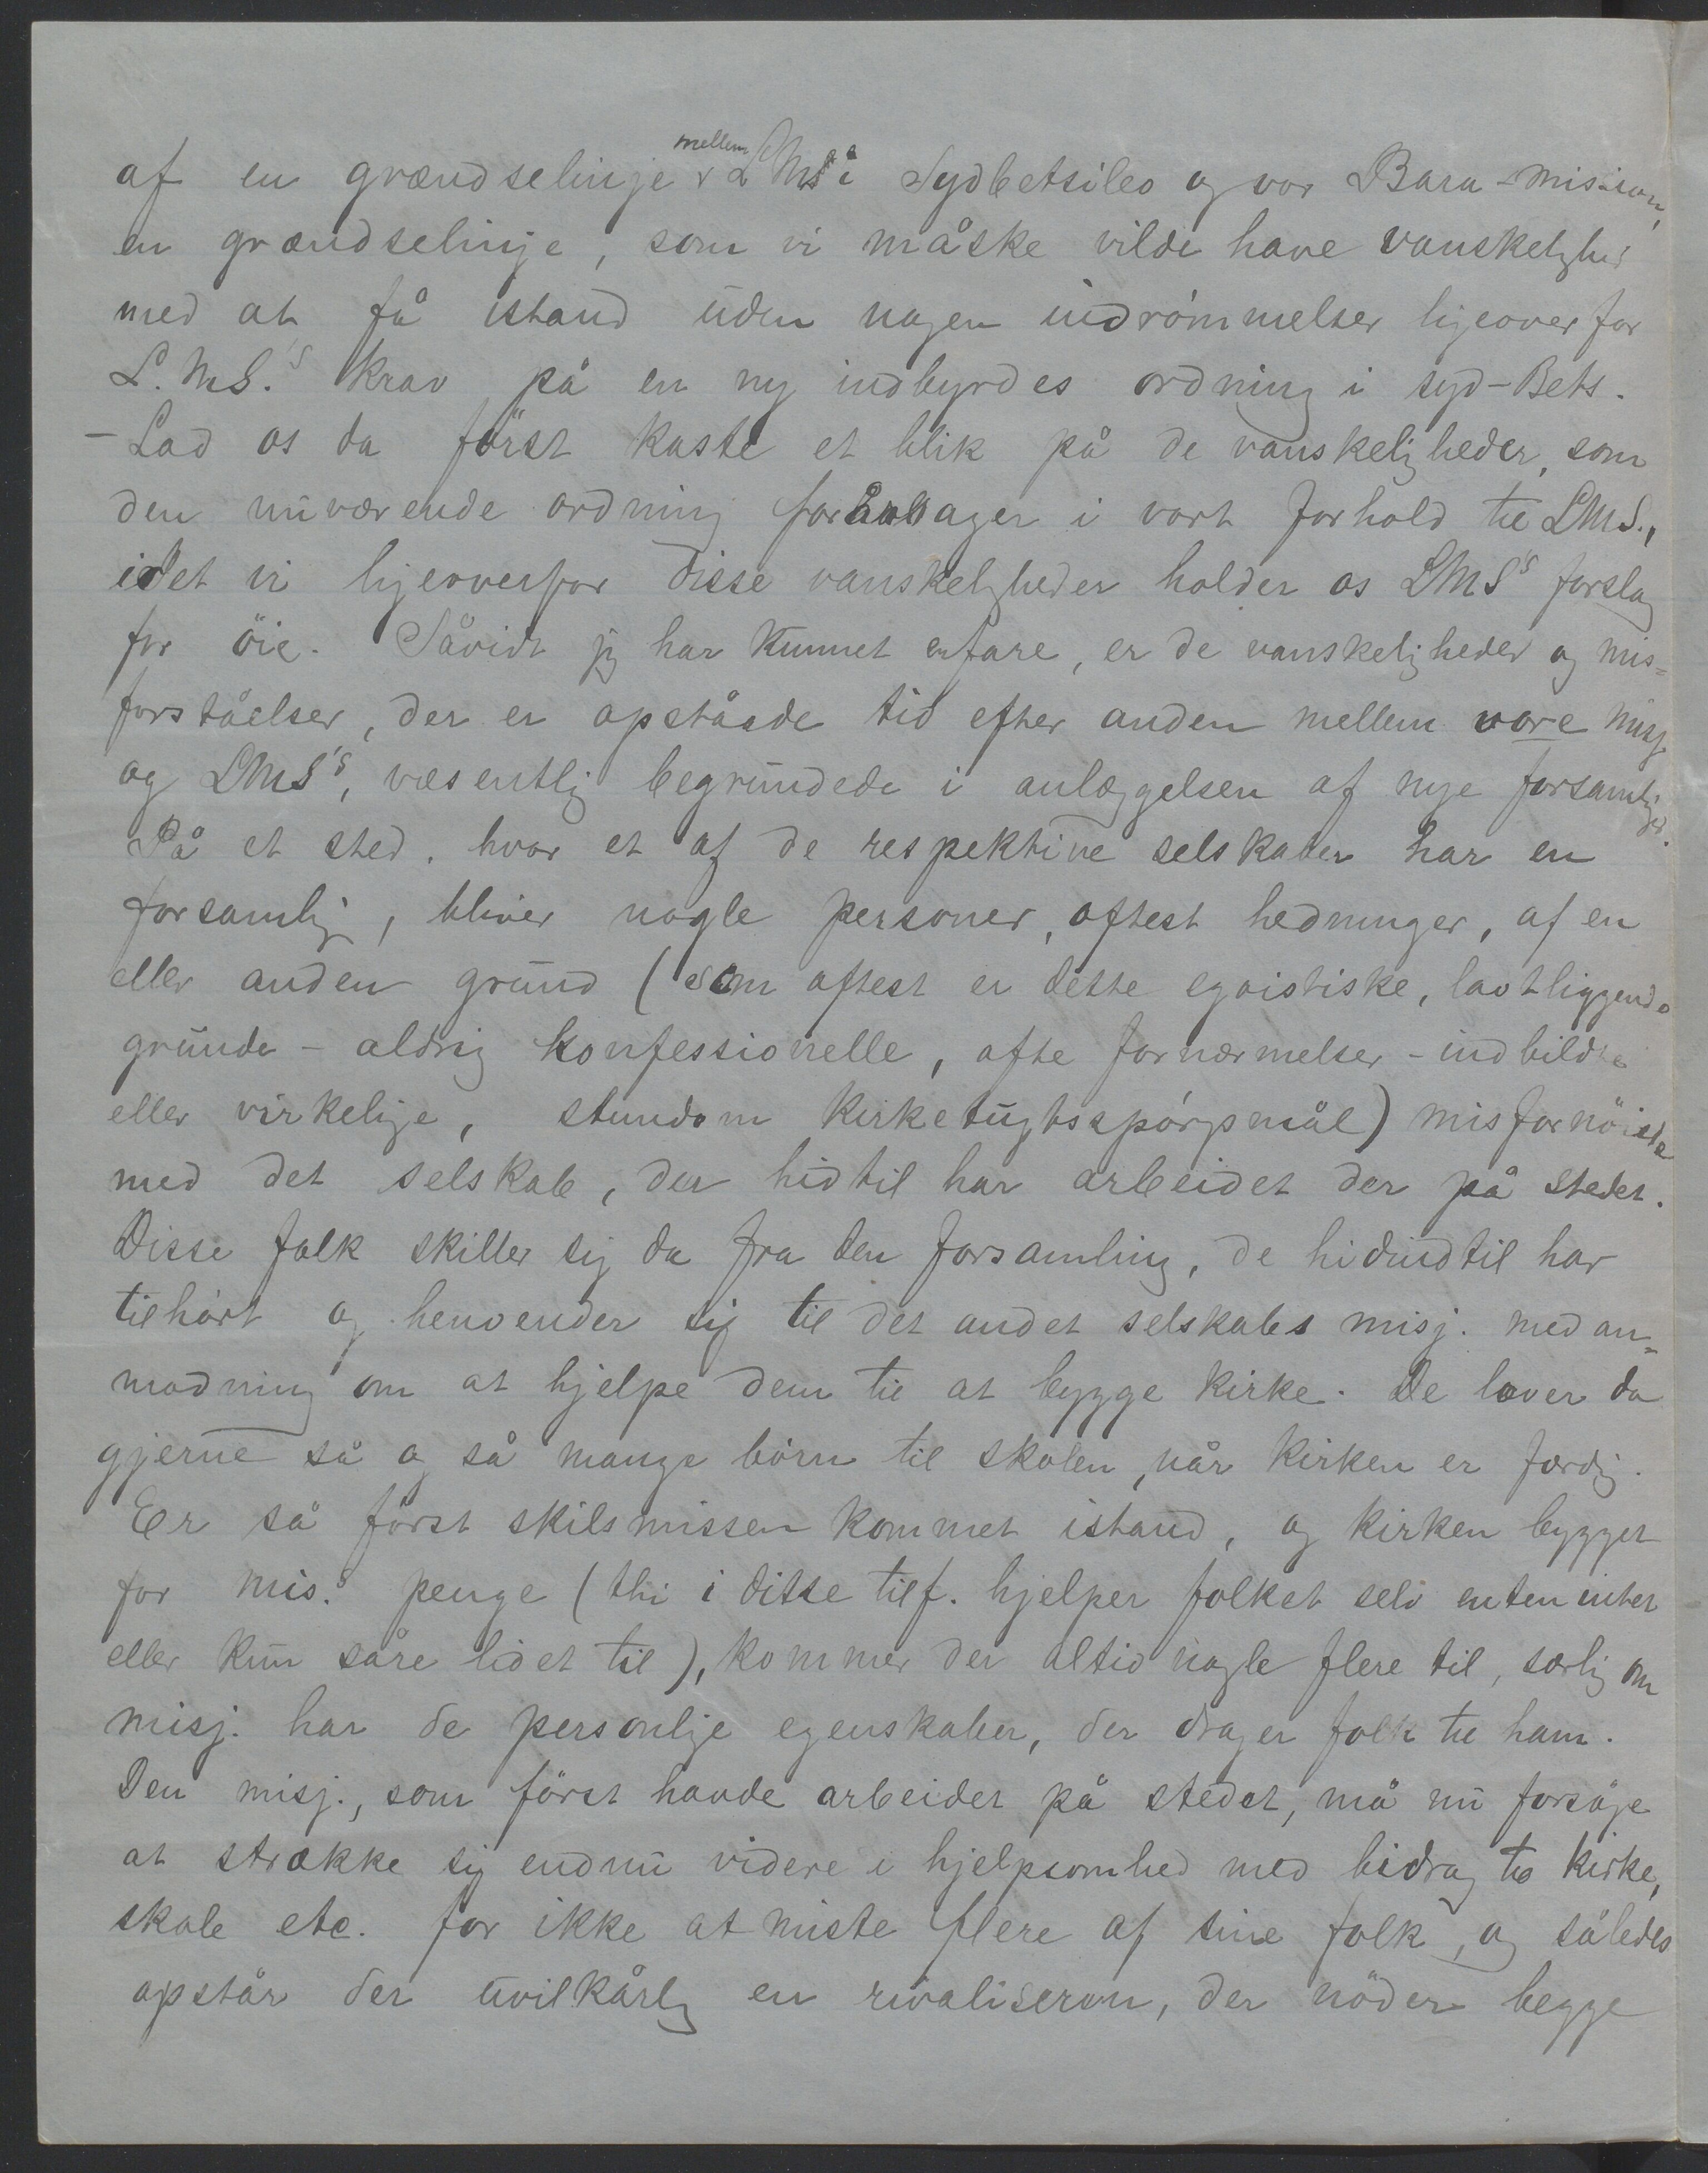 af en grændselinje mellem LMS i Sydbetsileo og vor Bara-mission,
en grændselinje, som vi måske vilde have vanskelighed
med at få istand uden nogen indrömmelser ligeoverfor
L.M.S.'s krav på en ny indbyrdes ordning i syd-Bets.
- Lad os da först kaste et blik på de vanskeligheder, som
den nuværende ordning forårsager i vort forhold til LMS.,
idet vi ligeoverfor disse vanskeligheder holder os LMS's forslag
for öie. Såvidt jeg har kunnet erfare, er de vanskeligheder og mis=
forståelser, der er opståede tid efter anden mellem vore misj.
og LMS's, væsentlig begrundede i anlæggelsen af nye forsamliger.
På et sted, hvor et af de respektive selskaber har en
forsamlig, bliver nogle personer, oftest hedninger, af en
eller anden grund (som oftest er dette egoistiske, lavtliggende
grunde - aldrig konfessionelle, ofte fornærmelser - indbildte
eller virkelige, stundom kirketugtsspörgsmål) misfornöiede
med det selskab, der hidtil har arbeidet der på stedet.
Disse folk skiller sig da fra den forsamling, de hidindtil har
tilhört og henvender sig til det andet selskabs misj. med an=
modning om at hjelpe dem til at bygge kirke. De lover da
gjerne så og så mange börn til skolen, når kirken er færdig.
Er så först skilsmissen kommet istand, og kirken bygget
for mis.s penge (thi i disse tilf. hjelper folket selv enten intet
eller kun såre lidet til), kommer der altid nogle flere til, særlig om
misj. har de personlige egenskaber, der drager folk til ham.
Den misj., som först havde arbeidet på stedet, må nu forsöge
at strække sig endnu videre i hjelpsomhed med bidrag til kirke,
skole etc. for ikke at miste flere af sine folk, og således
opstår der uvilkårlig en rivaliseren, der nöder begge